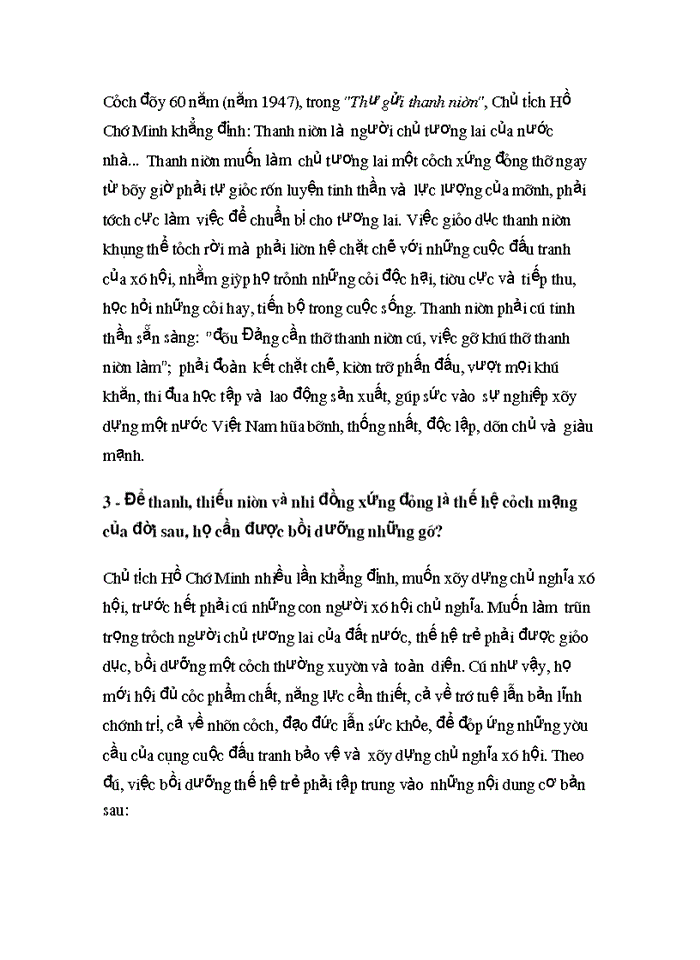 Cỏch đõy 60 năm (năm 1947), trong "Thư gửi thanh niờn", Chủ tịch Hồ
Chớ Minh khẳng định: Thanh niờn là người chủ tương lai của nước
nhà... Thanh niờn muốn làm chủ tương lai một cỏch xứng đỏng thỡ ngay
từ bõy giờ phải tự giỏc rốn luyện tinh thần và lực lượng của mỡnh, phải
tớch cực làm việc để chuẩn bị cho tương lai. Việc giỏo dục thanh niờn
khụng thể tỏch rời mà phải liờn hệ chặt chẽ với những cuộc đấu tranh
của xó hội, nhằm giỳp họ trỏnh những cỏi độc hại, tiờu cực và tiếp thu,
học hỏi những cỏi hay, tiến bộ trong cuộc sống. Thanh niờn phải cú tinh
thần sẵn sàng: "đõu Đảng cần thỡ thanh niờn cú, việc gỡ khú thỡ thanh
niờn làm"; phải đoàn kết chặt chẽ, kiờn trỡ phấn đấu, vượt mọi khú
khăn, thi đua học tập và lao động sản xuất, gúp sức vào sự nghiệp xõy
dựng một nước Việt Nam hũa bỡnh, thống nhất, độc lập, dõn chủ và giàu
mạnh.
3 - Để thanh, thiếu niờn và nhi đồng xứng đỏng là thế hệ cỏch mạng
của đời sau, họ cần được bồi dưỡng những gỡ?
Chủ tịch Hồ Chớ Minh nhiều lần khẳng định, muốn xõy dựng chủ nghĩa xó
hội, trước hết phải cú những con người xó hội chủ nghĩa. Muốn làm trũn
trọng trỏch người chủ tương lai của đất nước, thế hệ trẻ phải được giỏo
dục, bồi dưỡng một cỏch thường xuyờn và toàn diện. Cú như vậy, họ
mới hội đủ cỏc phẩm chất, năng lực cần thiết, cả về trớ tuệ lẫn bản lĩnh
chớnh trị, cả về nhõn cỏch, đạo đức lẫn sức khỏe, để đỏp ứng những yờu
cầu của cụng cuộc đấu tranh bảo vệ và xõy dựng chủ nghĩa xó hội. Theo
đú, việc bồi dưỡng thế hệ trẻ phải tập trung vào những nội dung cơ bản
sau: